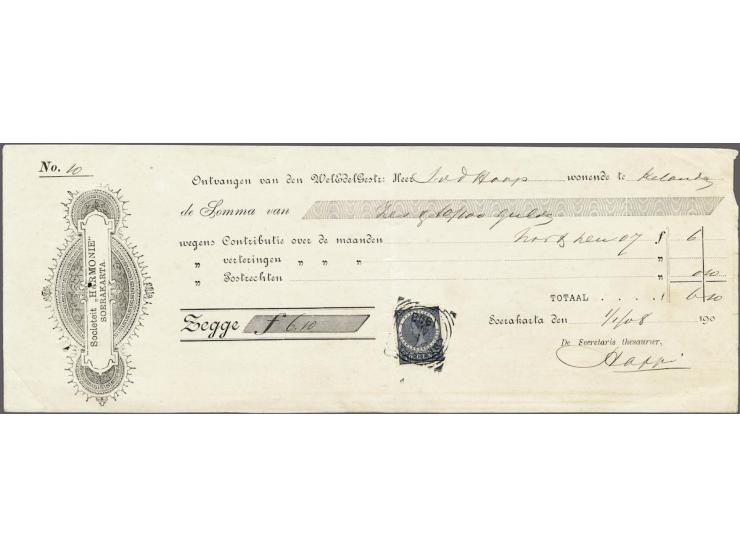 No. 10
Societeit „HARMONIE"
SOERAKARTA.
Ontvangen van den WelEdelGestr: Heer v d Haop wonende te
de Somma van Zes 10/100 gulden
wegens Contributie over de maanden f 6
„ verteringen „ „ „ „
Postrechten „ 0 10
TOTAAL . . . . . f 6 10
Zegge f 6.10
Soerakarta den 1/1/08 190
De Secretaris thesaurier,
CENT